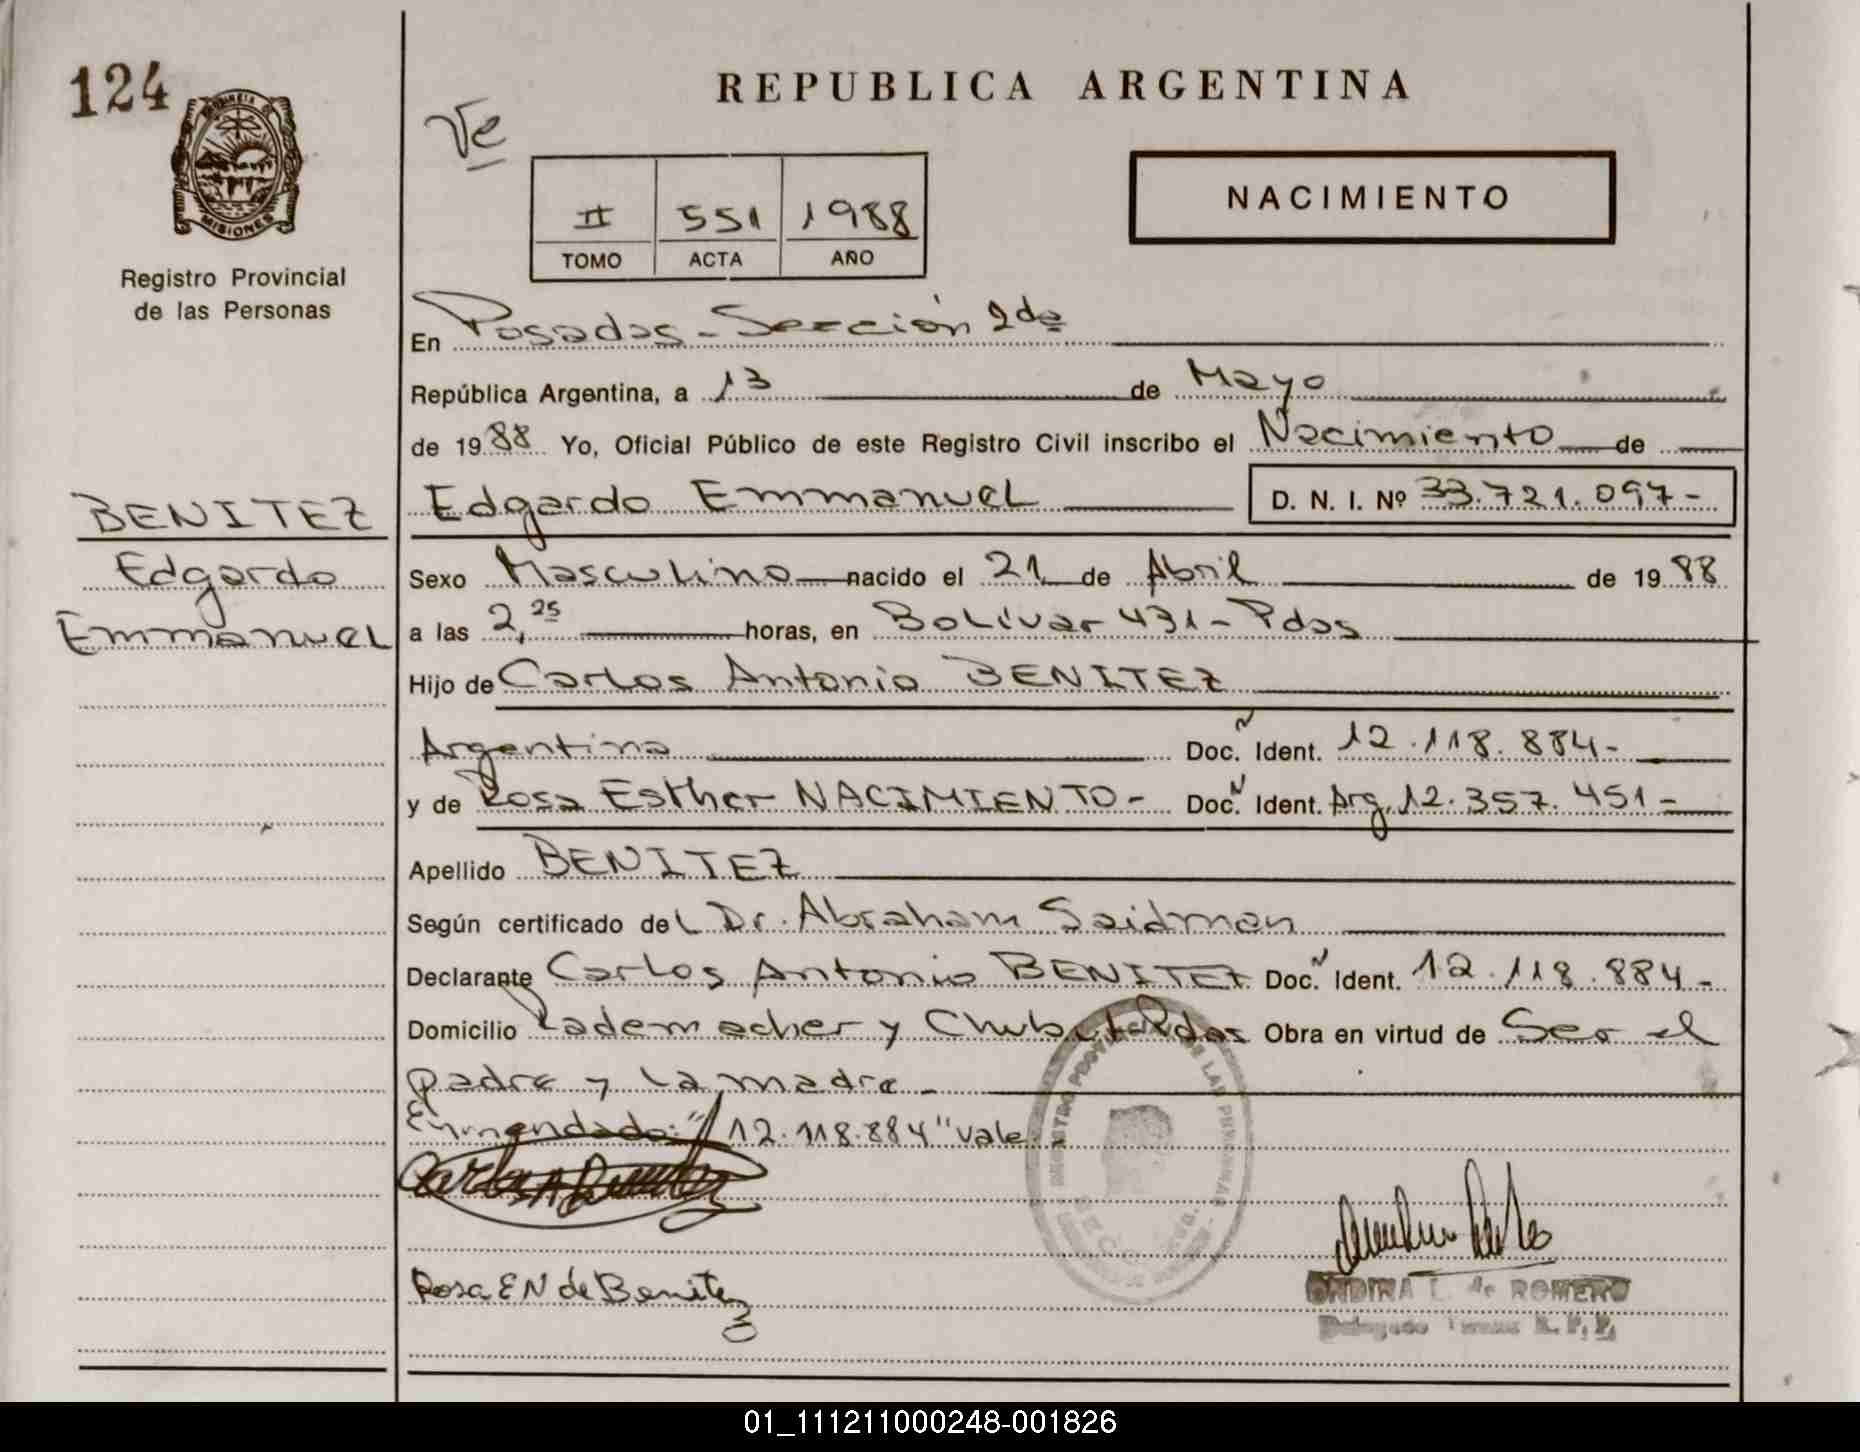 124
PROVINCIA DE
MISIONES
Registro Provincial
de las Personas
BENITEZ
Edgardo
Emmanuel
REPUBLICA ARGENTINA
Ve
II 551 1988
TOMO ACTA AÑO
NACIMIENTO
En Posadas - Sección 2da
República Argentina, a 13 de Mayo
de 1988 Yo, Oficial Público de este Registro Civil inscribo el Nacimiento de
Edgardo Emmanuel D. N. I. Nº 33.721.097-
Sexo Masculino nacido el 21 de Abril de 1988
a las 2,25 horas, en Bolívar 431 - Pdas
Hijo de Carlos Antonio BENITEZ
Argentina Doc. Ident. 12.118.884-
y de Rosa Esther NACIMIENTO- Doc. Ident. Arg. 12.357.451-
Apellido BENITEZ
Según certificado del Dr. Abraham Saidman
Declarante Carlos Antonio BENITEZ Doc. Ident. 12.118.884-
Domicilio Rademacher y Chubut Pdas Obra en virtud de Ser el
padre y la madre -
Enmendado: "12.118.884" Vale
REGISTRO PROVINCIAL DE LAS PERSONAS
Rosa E N de Benitez
ONDINA L. de ROMERO
Delegado R. P. P.
01_111211000248-001826